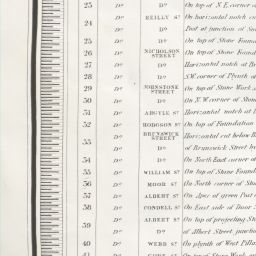 23 Do Do On top of N.E. corner o
24 Do REILLY ST On horizontal notch c
Do Do Foot at junction of S
25 Do Do On top of Stone Founda
26 Do NICHOLSON STREET On top of Stone Found
27 Do Do Horizontal notch at B
28 Do Do S.W. corner of Plinth o
29 Do JOHNSTONE STREET On top of Stone Work a
50 Do Do On N.W. corner of Ston
51 Do ARGYLE ST Horizontal notch at B
52 Do HODGSON ST On top of Foundation
53 Do BRUNSWICK STREET Horizontal cut below B
Do Do of Brunswick Street be
54 Do Do On North East corner o
55 Do WILLIAM ST On top of Stone Founda
56 Do MOOR ST On North corner of Sto
57 Do ALBERT ST On Apex of green Post
58 Do CONDELL ST On East side of Door S
39 Do ALBERT ST On top of projecting St
Do Do of Albert Street junctio
40 Do WEBB ST On plynth of West Pilla
41 Do